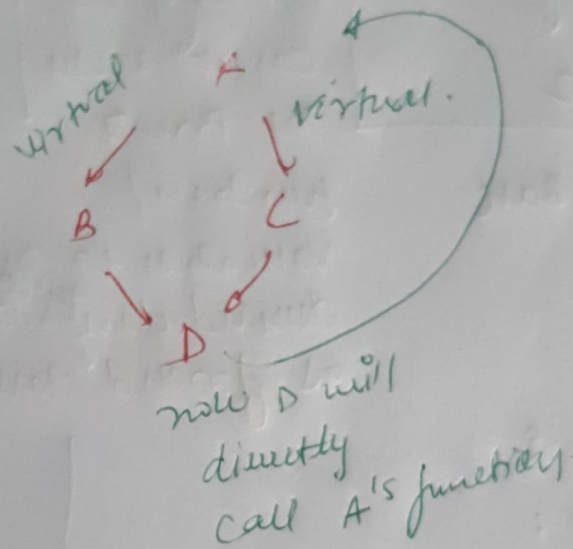 A
virtual
virtual.
B
C
D
now D will
directly
call A's function